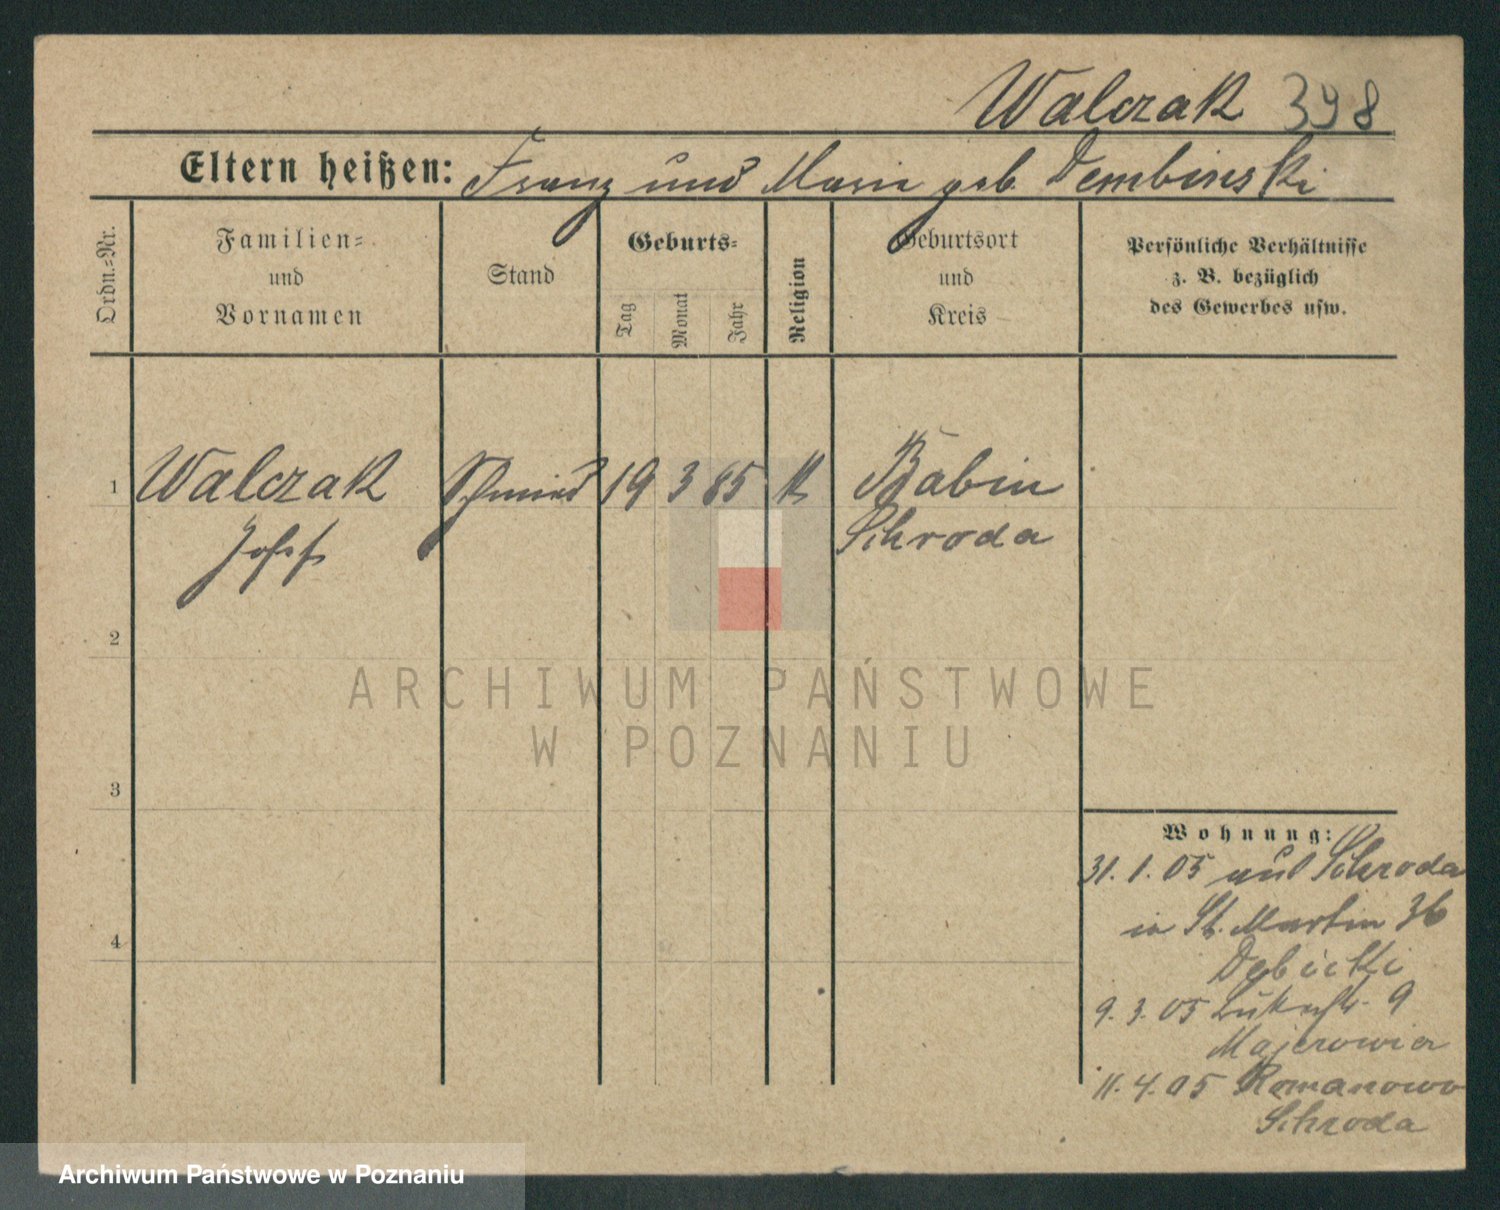 Walczak 398
Eltern heißen: Franz und Marie geb. Dembinski
Ordn.-Nr.
Familien-
und
Vornamen
Stand
Geburts-
Tag
Monat
Jahr
Religion
Geburtsort
und
Kreis
Persönliche Verhältnisse
z. B. bezüglich
des Gewerbes usw.
1 Walczak Schmied 19 3 85 K Babin
Josef Schroda
2
3
4
ARCHIWUM PAŃSTWOWE
W POZNANIU
Wohnung:
31. 1. 05 aus Schroda
in St. Martin 36
Dębicki
9. 3. 05 9
Majerowicz
11. 4. 05 Romanowo
Schroda
Archiwum Państwowe w Poznaniu